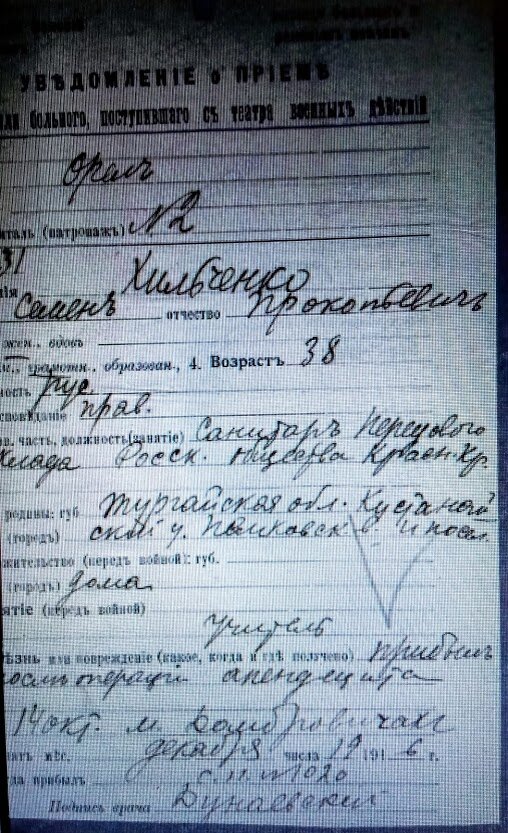 УВѢДОМЛЕНІЕ о ПРІЕМѢ
больного, поступившаго съ театра военныхъ дѣйствій
Орелъ
(патронажъ) № 2
31
Хильченко
Семенъ отчество Прокопьевичъ
вдовъ
грамотн., образован., 4. Возрастъ 38
рус.
прав.
часть, должность(занятіе) Санитаръ Передового
Росск. общества Красн. Кр.
родины: губ. Тургайская обл. Кустанай
(городъ) ской у.
жительство (передъ войной): губ.
(городъ) дома
(передъ войной)
Учитель
или поврежденіе (какое, когда и гдѣ получено) прибылъ
операціи апендецита
14 окт. м. Домбровичахъ
мѣс. декабря числа 19 1916 г.
прибылъ с. п. № 1020
Подпись врача Дунаевскій